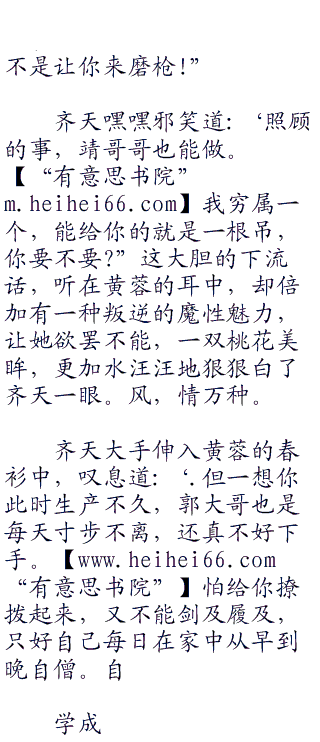 不是让你来磨枪!”
齐天嘿嘿邪笑道：‘照顾
的事，靖哥哥也能做。
【“有意思书院”
m.heihei66.com】我穷属一
个，能给你的就是一根吊，
你要不要?”这大胆的下流
话，听在黄蓉的耳中，却倍
加有一种叛逆的魔性魅力，
让她欲罢不能，一双桃花美
眸，更加水汪汪地狠狠白了
齐天一眼。风，情万种。
齐天大手伸入黄蓉的春
衫中，叹息道：‘.但一想你
此时生产不久，郭大哥也是
每天寸步不离，还真不好下
手。【www.heihei66.com
“有意思书院”】怕给你撩
拨起来，又不能剑及履及，
只好自己每日在家中从早到
晚自僧。自
学成